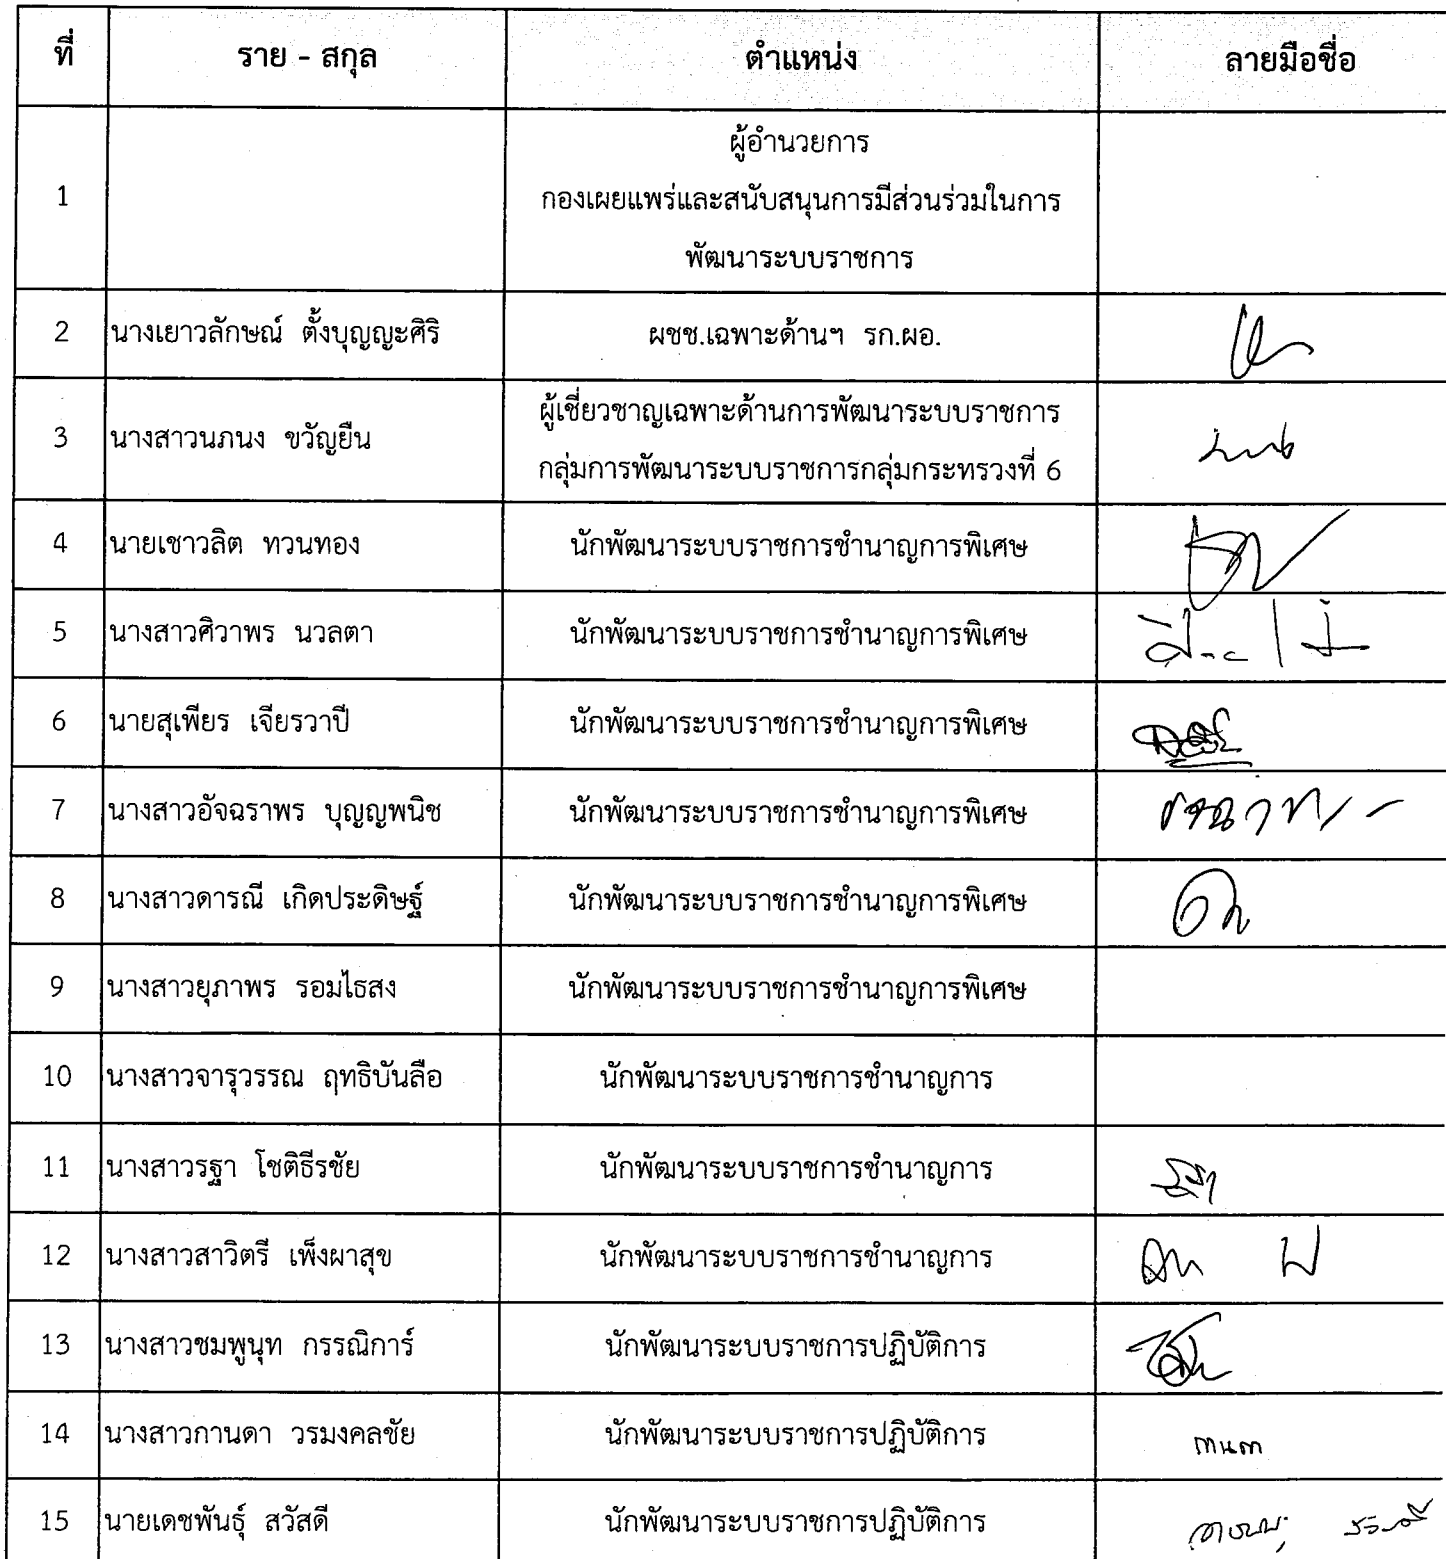 ที่ ราย - สกุล ตำแหน่ง ลายมือชื่อ
ผู้อำนวยการ
1 กองเผยแพร่และสนับสนุนการมีส่วนร่วมในการ
พัฒนาระบบราชการ
2 นางเยาวลักษณ์ ตั้งบุญญะศิริ ผชช.เฉพาะด้านฯ รก.ผอ.
ผู้เชี่ยวชาญเฉพาะด้านการพัฒนาระบบราชการ
3 นางสาวนภนง ขวัญยืน
กลุ่มการพัฒนาระบบราชการกลุ่มกระทรวงที่ 6
4 นายเชาวลิต ทวนทอง นักพัฒนาระบบราชการชำนาญการพิเศษ
5 นางสาวศิวาพร นวลตา นักพัฒนาระบบราชการชำนาญการพิเศษ
6 นายสุเพียร เจียรวาปี นักพัฒนาระบบราชการชำนาญการพิเศษ
7 นางสาวอัจฉราพร บุญญพนิช นักพัฒนาระบบราชการชำนาญการพิเศษ
8 นางสาวดารณี เกิดประดิษฐ์ นักพัฒนาระบบราชการชำนาญการพิเศษ
9 นางสาวยุภาพร รอมไธสง นักพัฒนาระบบราชการชำนาญการพิเศษ
10 นางสาวจารุวรรณ ฤทธิบันลือ นักพัฒนาระบบราชการชำนาญการ
11 นางสาวรฐา โชติธีรชัย นักพัฒนาระบบราชการชำนาญการ
12 นางสาวสาวิตรี เพ็งผาสุข นักพัฒนาระบบราชการชำนาญการ
13 นางสาวชมพูนุท กรรณิการ์ นักพัฒนาระบบราชการปฏิบัติการ
14 นางสาวกานดา วรมงคลชัย นักพัฒนาระบบราชการปฏิบัติการ
15 นายเดชพันธุ์ สวัสดี นักพัฒนาระบบราชการปฏิบัติการ